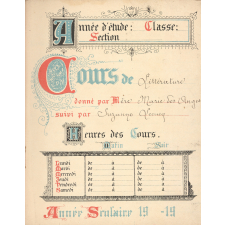 Année d'étude: Classe:
Section
Cours de Littérature
donné par Mère Marie des Anges
suivi par Suzanne
Heures des Cours.
Matin Soir
Lundi de à de à
Mardi de à de à
Mercredi de à de à
Jeudi de à de à
Vendredi de à de à
Samedi de à de à
Année Scolaire 19 -19